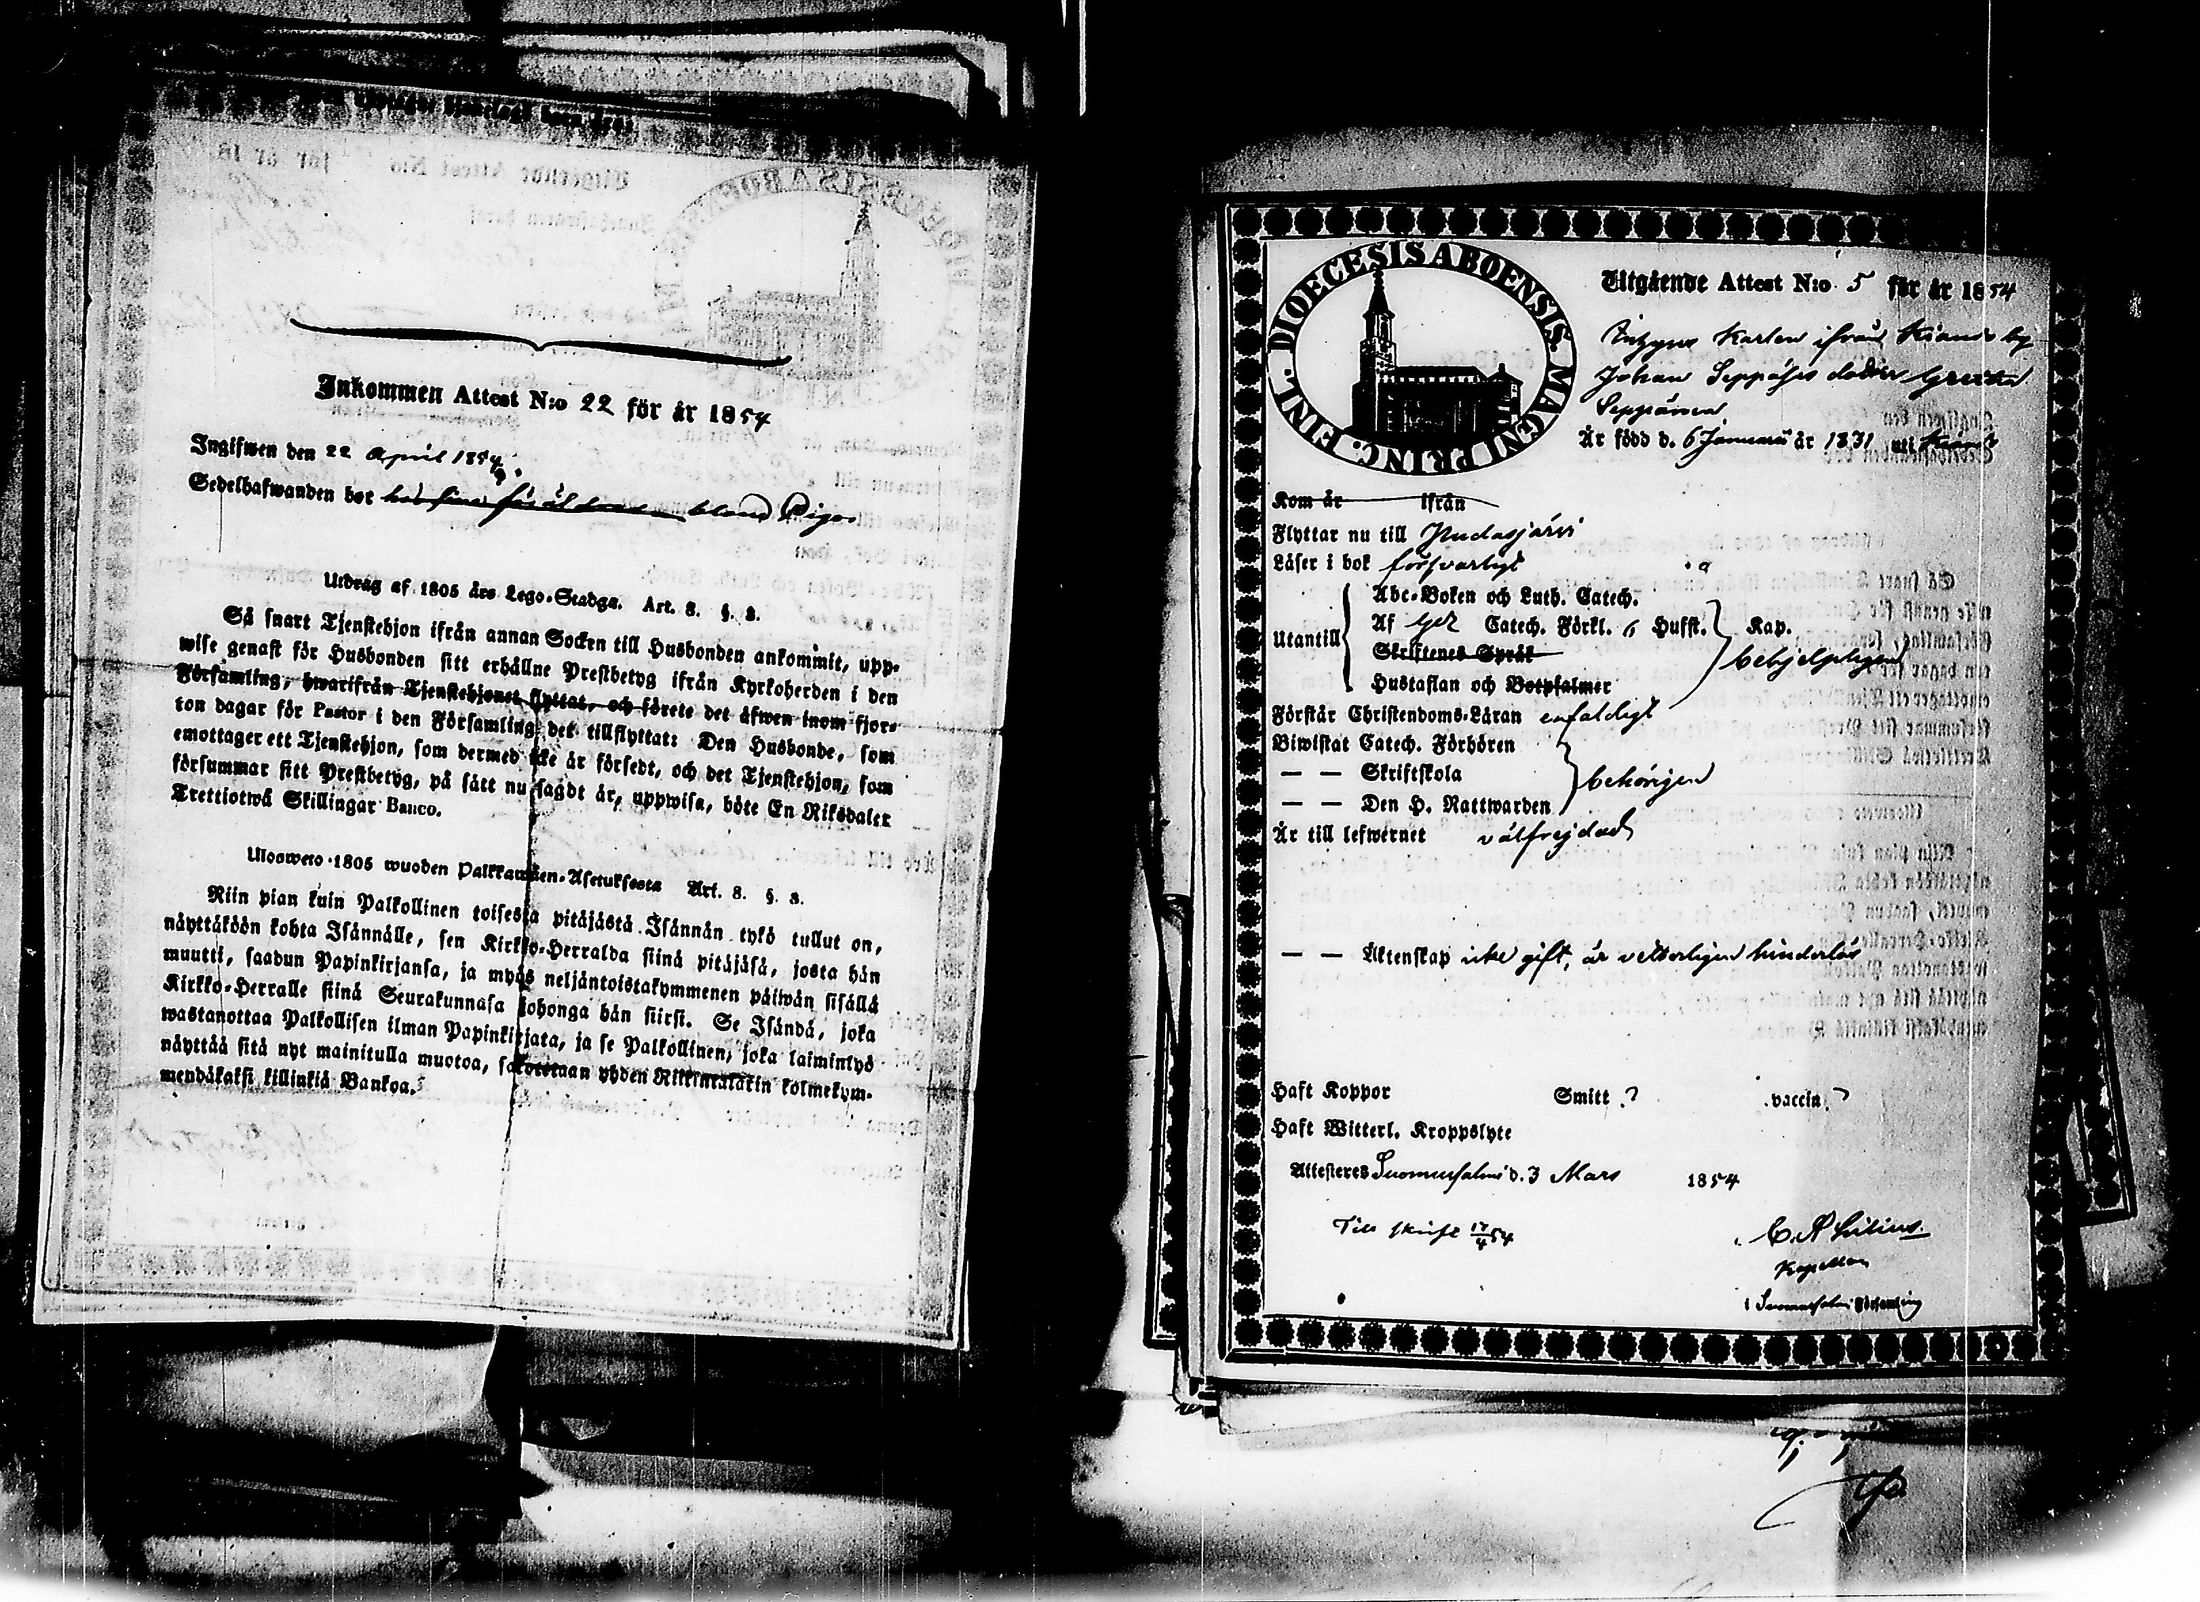 Inkommen Attest N:o 22 för år 1854
Ingifwen den 22 April 1854.
Sedelhafwanden bor hos sine föräldrar bland Pigor
Utdrag af 1805 års Lego-Stadga. Art. 8. §. 3.
Så snart Tjenstehjon ifrån annan Socken till Husbonden ankommit, upp-
wise genast för Husbonden sitt erhållne Prestbetyg ifrån Kyrkoherden i den
Församling, hwarifrån Tjenstehjonet flyttat, och förete det äfwen inom fjor-
ton dagar för Pastor i den Församling det tillflyttat: Den Husbonde, som
emottager ett Tjenstehjon, som dermed icke är försedt, och det Tjenstehjon, som
försummar sitt Prestbetyg, på sätt nu sagdt är, uppwisa, böte En Riksdaler
Trettiotwå Skillingar Banco.
Ulosweto 1805 wuoden Palkkawäen-Asetuksesta Art. 8. §. 3.
Niin pian kuin Palkollinen toisesta pitäjästä Isännän tykö tullut on,
näyttäköön kohta Isännälle, sen Kirkko-Herralda siinä pitäjäsä, josta hän
muutti, saadun Papinkirjansa, ja myös neljäntoistakymmenen päiwän sisällä
Kirkko-Herralle siinä Seurakunnasa johonga hän siirsi. Se Isändä, joka
wastanottaa Palkollisen ilman Papinkirjata, ja se Palkollinen, joka laiminlyö
näyttää sitä nyt mainitulla muotoa, sakoitetaan yhden Riikintalarin kolmekym-
mendäkaksi killinkiä Bankoa.
DIOECESIS ABOENSIS. MAGNI PRINC. FINL.
Utgående Attest N:o 5 för år 1854
Inhyses Karlen ifrån Kiando by
Johan Seppäses dotter Greeta
Seppänen
Är född d. 6 Januarii år 1831 uti Kiando
Kom år ifrån
Flyttar nu till Pudasjärvi
Läser i bok försvarligt
Utantill
Abc-Boken och Luth. Catech.
Af Catech. Förkl. 6 Hufst. Kap.
Skriftenes Språk
behjelpligen
Hustaflan och Botpsalmer
Förstår Christendoms-Läran enfaldigt
Biwistat Catech. Förhören
— — Skriftskola
behörigen
— — Den H. Nattwarden
Är till lefwernet välfrejdad
— — Äktenskap icke gift, är vetterligen hinderlös
Haft Koppor Smitt ? vaccin ?
Haft Witterl. Kroppslyte
Attesteres Suomussalmi d. 3 Mars 1854
Till skrift 17/4 54
Kapellan
i Suomussalmi Församling